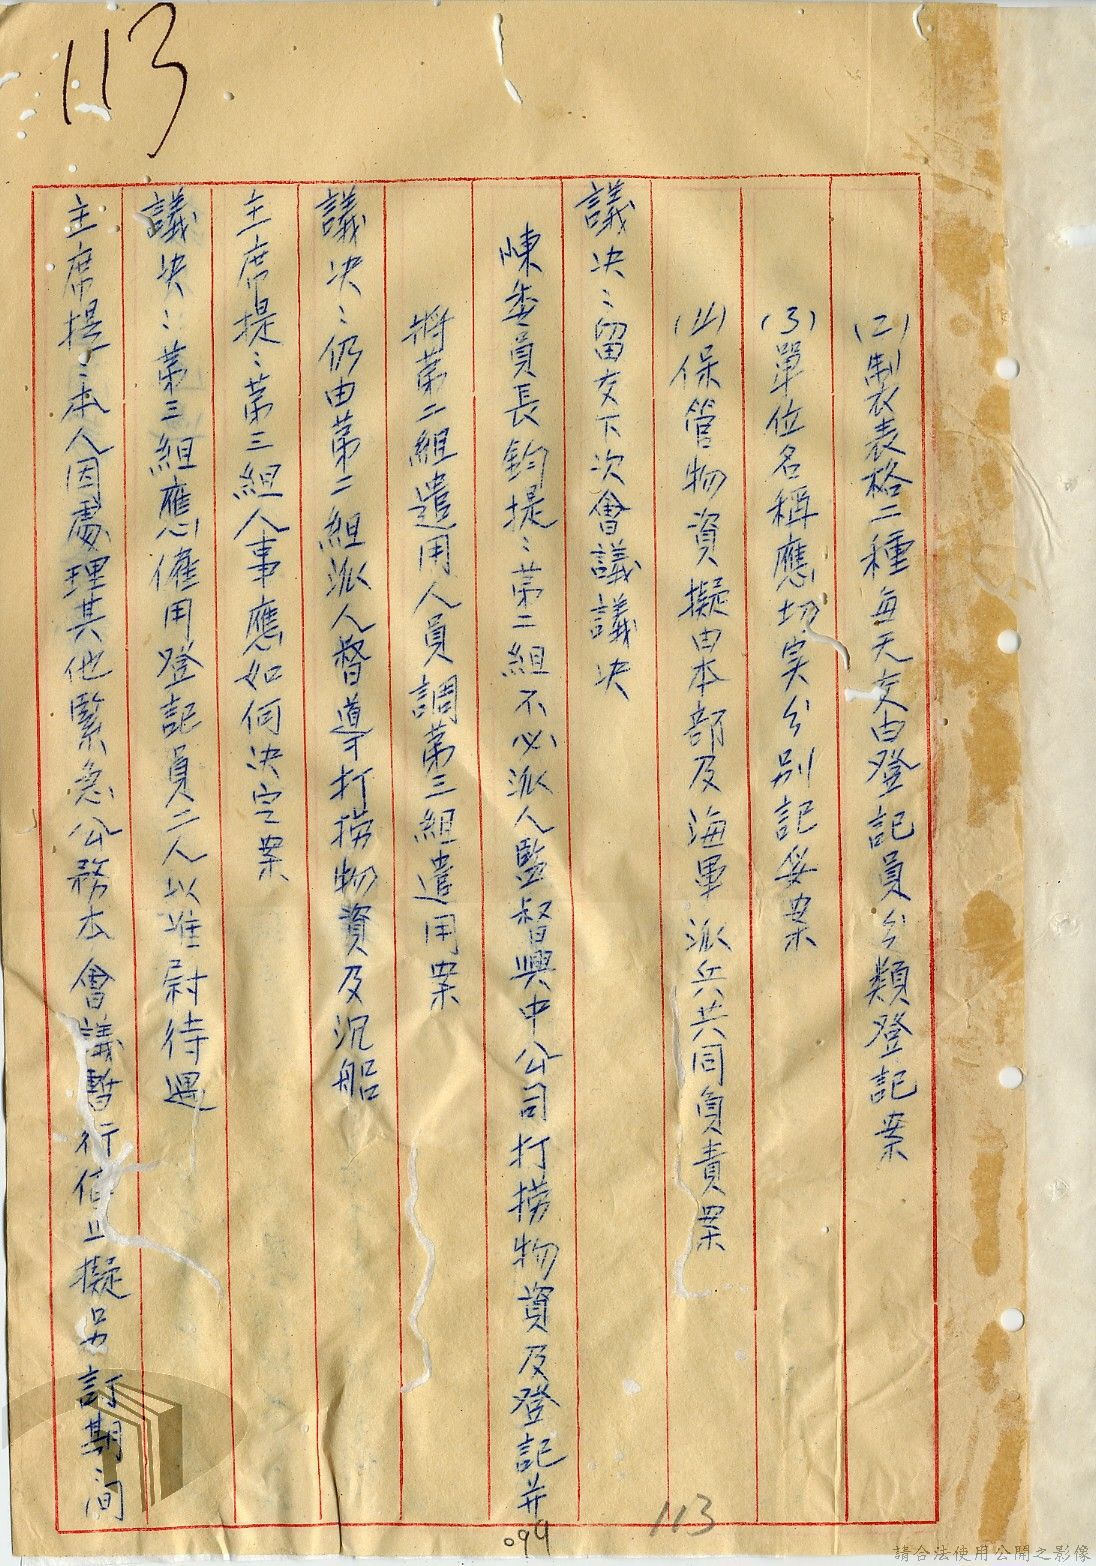 113
(2)制表表格二種每天交由登記員分類登記案
(3)單位名稱應切实分別記妥案
(4)保管物資擬由本部及海軍派兵共同負責案
議决：留交下次會議議决
陳委員長鈞提：第二組不必派人監督興中公司打撈物資及登記并
將第二組遣用人員調第三組遣用案
議决：仍由第二組派人督導打撈物資及沉船
主席提：第三組人事應如何决定案
議决：第三組應僱用登記員二人以准尉待遇
主席提：本人因處理其他緊急公務本會議暫行停止擬另訂期間
113
094
請合法使用公開之影像